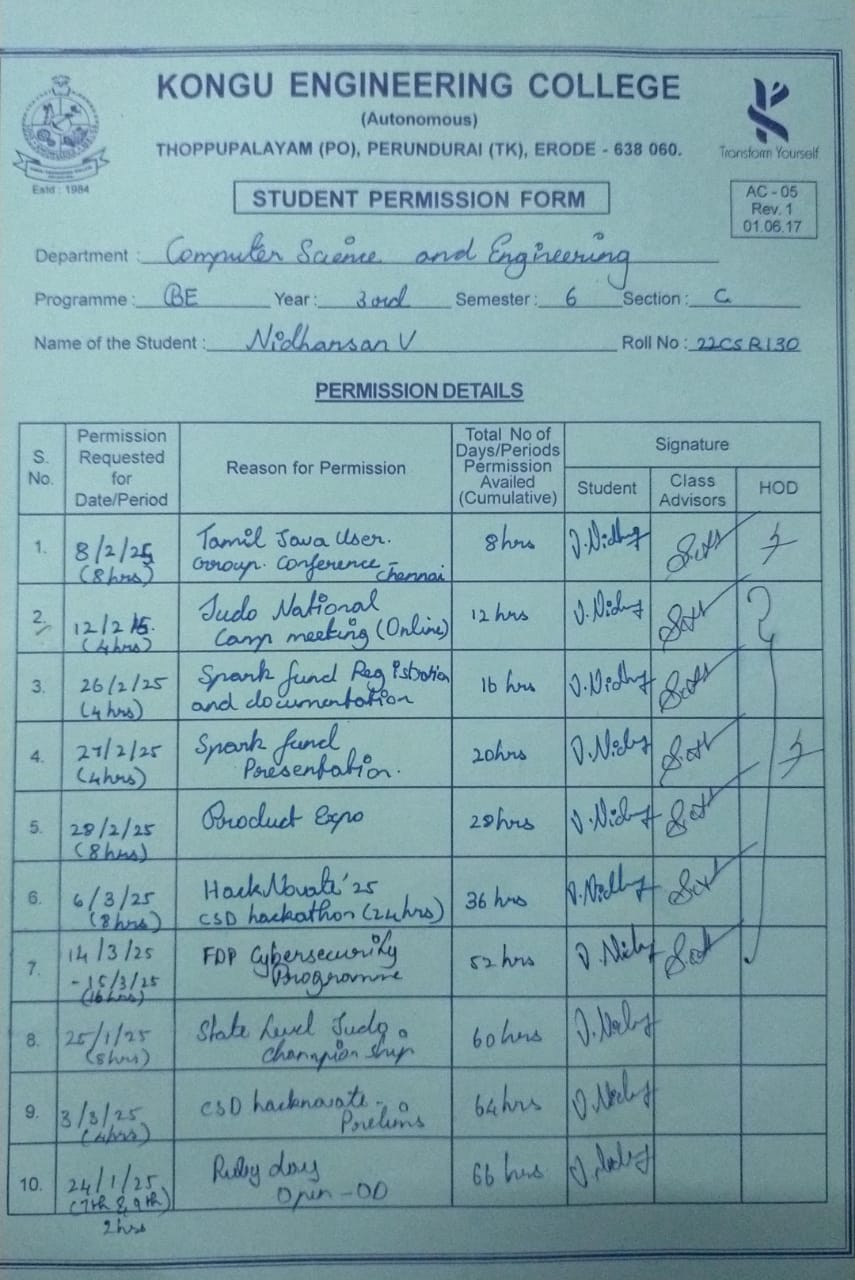 KONGU ENGINEERING COLLEGE
(Autonomous)
THOPPUPALAYAM (PO), PERUNDURAI (TK), ERODE - 638 060.
Estd : 1984
Transform Yourself
STUDENT PERMISSION FORM
AC - 05
Rev. 1
01.06.17
Department : Computer Science and Engineering
Programme : BE Year : 3rd Semester : 6 Section : C
Name of the Student : Nidharsan V Roll No : 22CSR130
PERMISSION DETAILS
S. No. Permission Requested for Date/Period Reason for Permission Total No of Days/Periods Permission Availed (Cumulative) Signature
Student Class Advisors HOD
1. 8/2/25 (8hrs) Tamil Java User Group Conference - Chennai 8hrs
2. 12/2/25 (4hrs) Judo National Camp meeting (Online) 12 hrs
3. 26/2/25 (4hrs) Spark fund Registration and documentation 16 hrs
4. 27/2/25 (4hrs) Spark fund Presentation. 20hrs
5. 28/2/25 (8hrs) Product Expo 28hrs
6. 6/3/25 (8hrs) HackNovate'25 CSD hackathon (24hrs) 36 hrs
7. 14/3/25 - 15/3/25 (16hrs) FDP Cybersecurity Programme 52 hrs
8. 25/1/25 (8hrs) State Level Judo Championship 60 hrs
9. 3/3/25 (4hrs) CSD hacknovate - Prelims 64hrs
10. 24/1/25 (7th & 9th) 2hrs Ruby day Open - OD 66 hrs